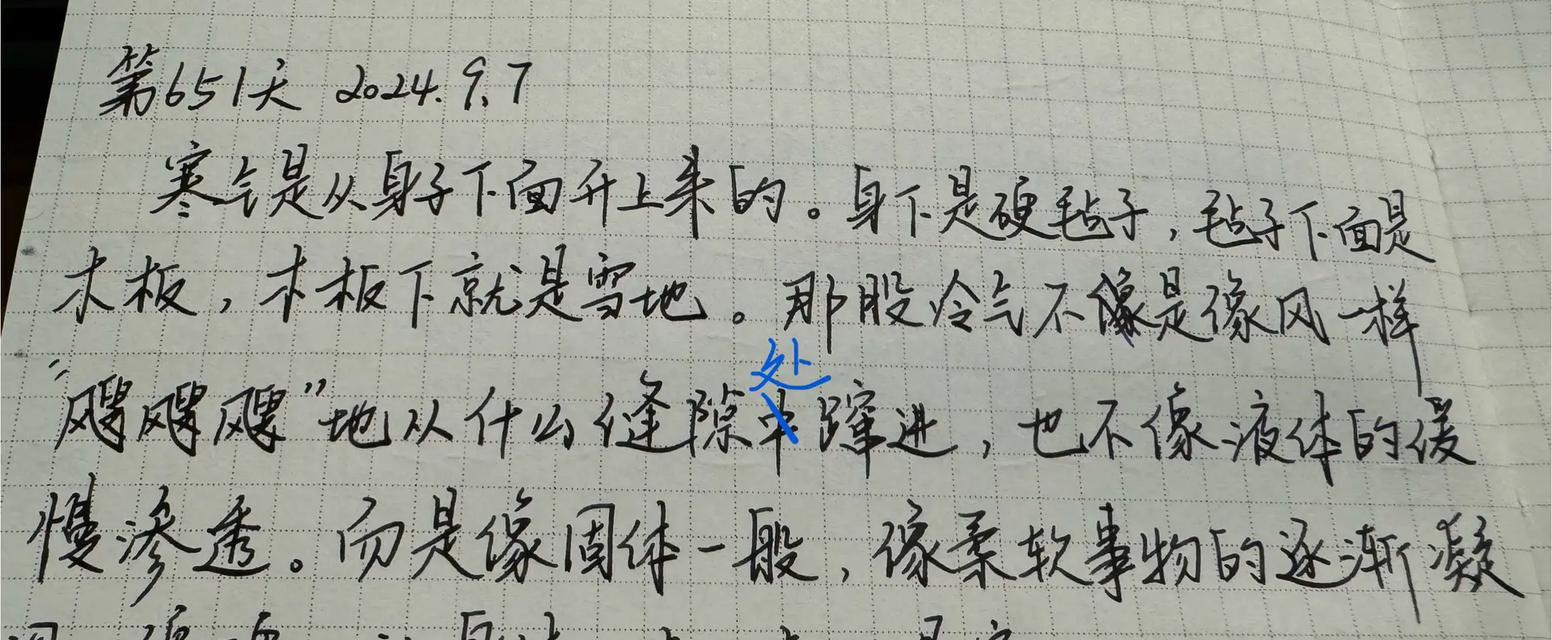 第651天 2024.9.7
寒气是从身子下面升上来的。身下是硬毡子，毡子下面是
木板，木板下就是雪地。那股冷气不像是像风一样
“飕飕飕”地从什么缝隙处蹿进，也不像液体的缓
慢渗透。而是像固体一般，像柔软事物的逐渐凝